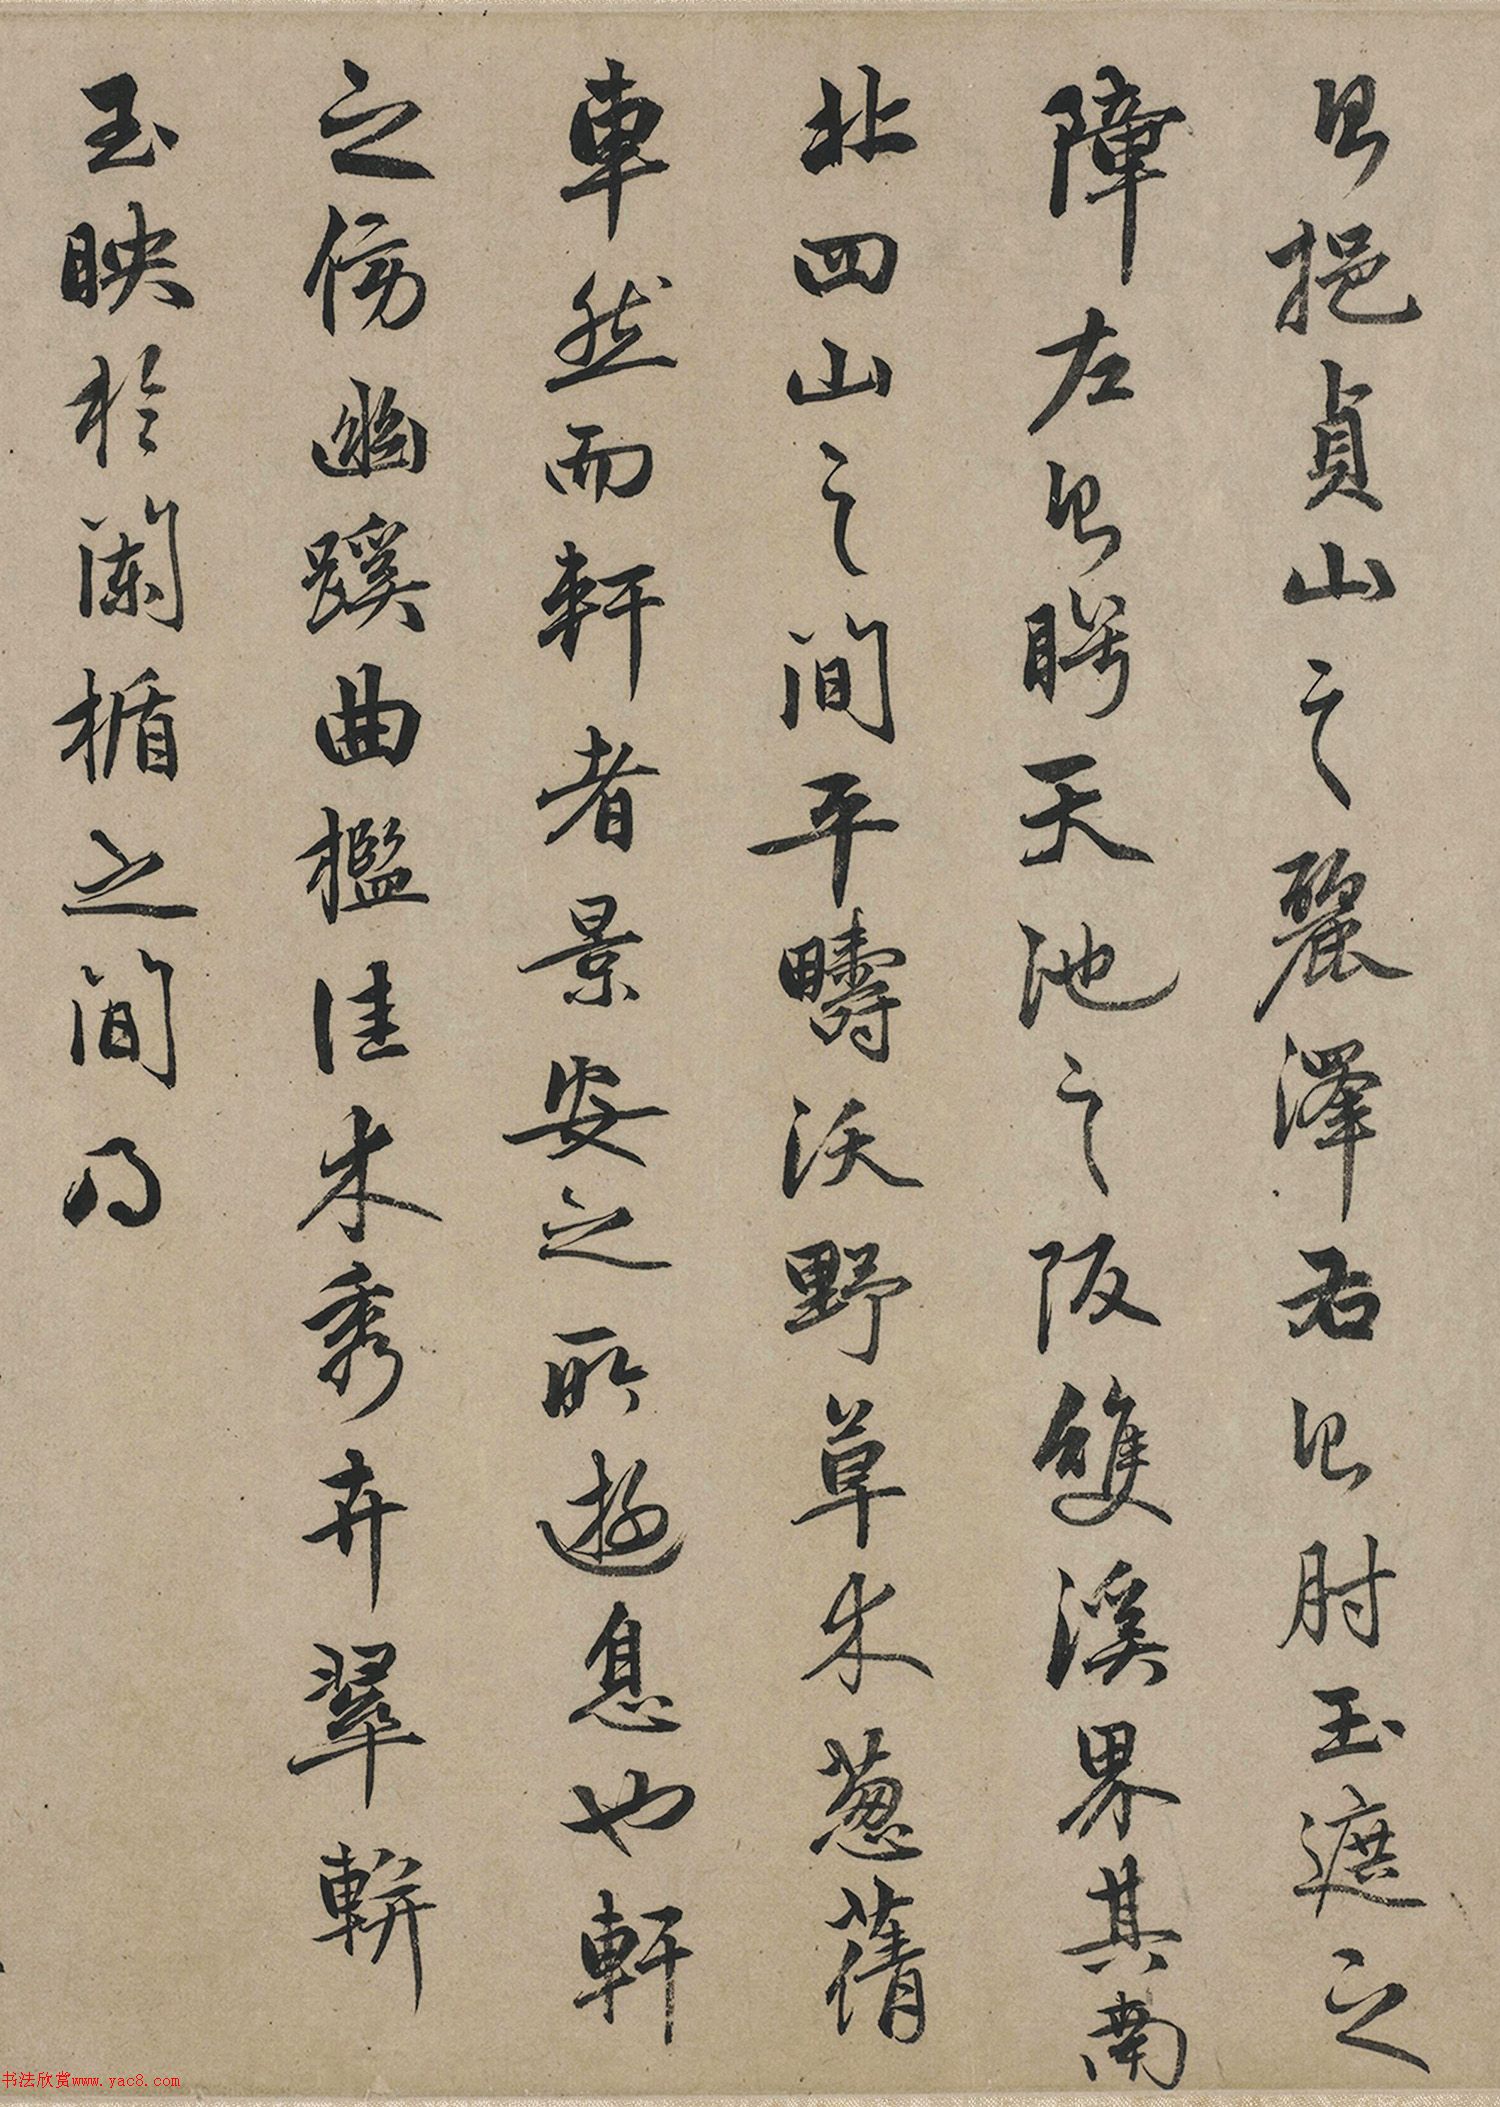 以挹貞山之麗澤右以肘玉遮之
障左以睇天池之阪雙溪界其南
北四山之間平疇沃野草木葱蒨
車然而軒者景安之所遊息也軒
之傍幽蹊曲檻佳木秀卉翠軿
玉映於闌楯之間乃
书法欣赏www.yac8.com